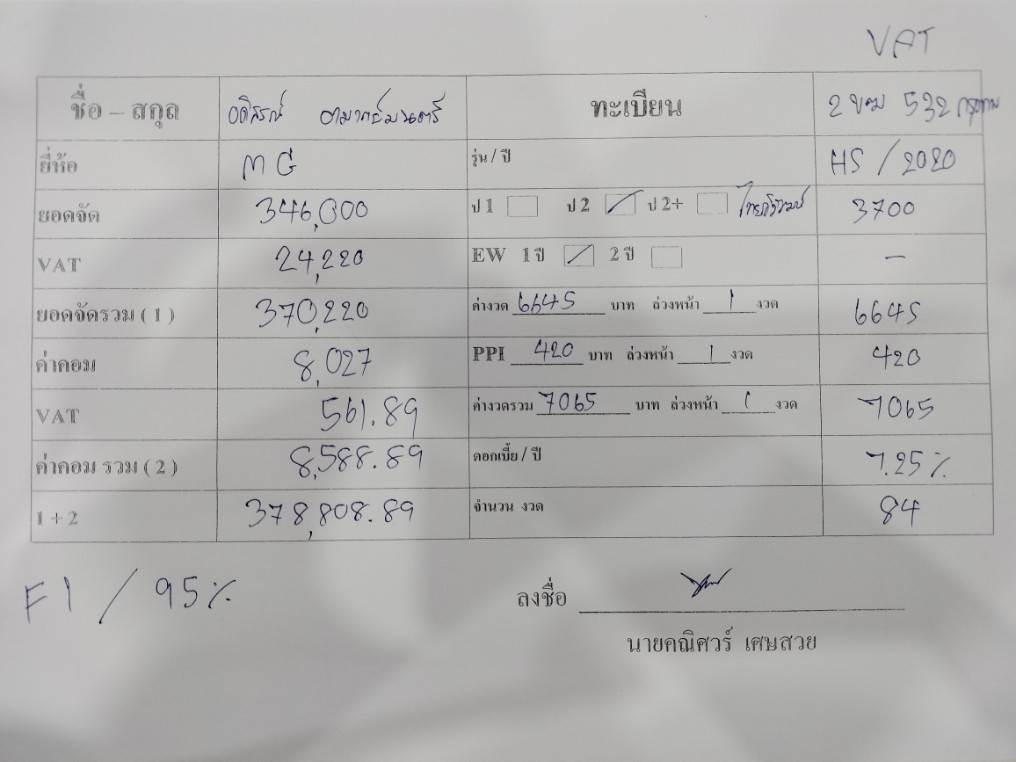 VAT
ชื่อ – สกุล อดิสรณ์ ทะเบียน 2 ขฆ 532 กรุงเทพ
ยี่ห้อ MG รุ่น / ปี HS / 2020
ยอดจัด 346,000 ป 1 ป 2 ป 2+ ไทยวิวัฒน์ 3700
VAT 24,220 EW 1 ปี 2 ปี –
ยอดจัดรวม ( 1 ) 370,220 ค่างวด 6645 บาท ล่วงหน้า 1 งวด 6645
ค่าคอม 8,027 PPI 420 บาท ล่วงหน้า 1 งวด 420
VAT 561.89 ค่างวดรวม 7065 บาท ล่วงหน้า 1 งวด 7065
ค่าคอม รวม ( 2 ) 8,588.89 ดอกเบี้ย / ปี 7.25 %
1 + 2 378,808.89 จำนวน งวด 84
F1 / 95 %
ลงชื่อ
นายคณิศวร์ เศษสวย